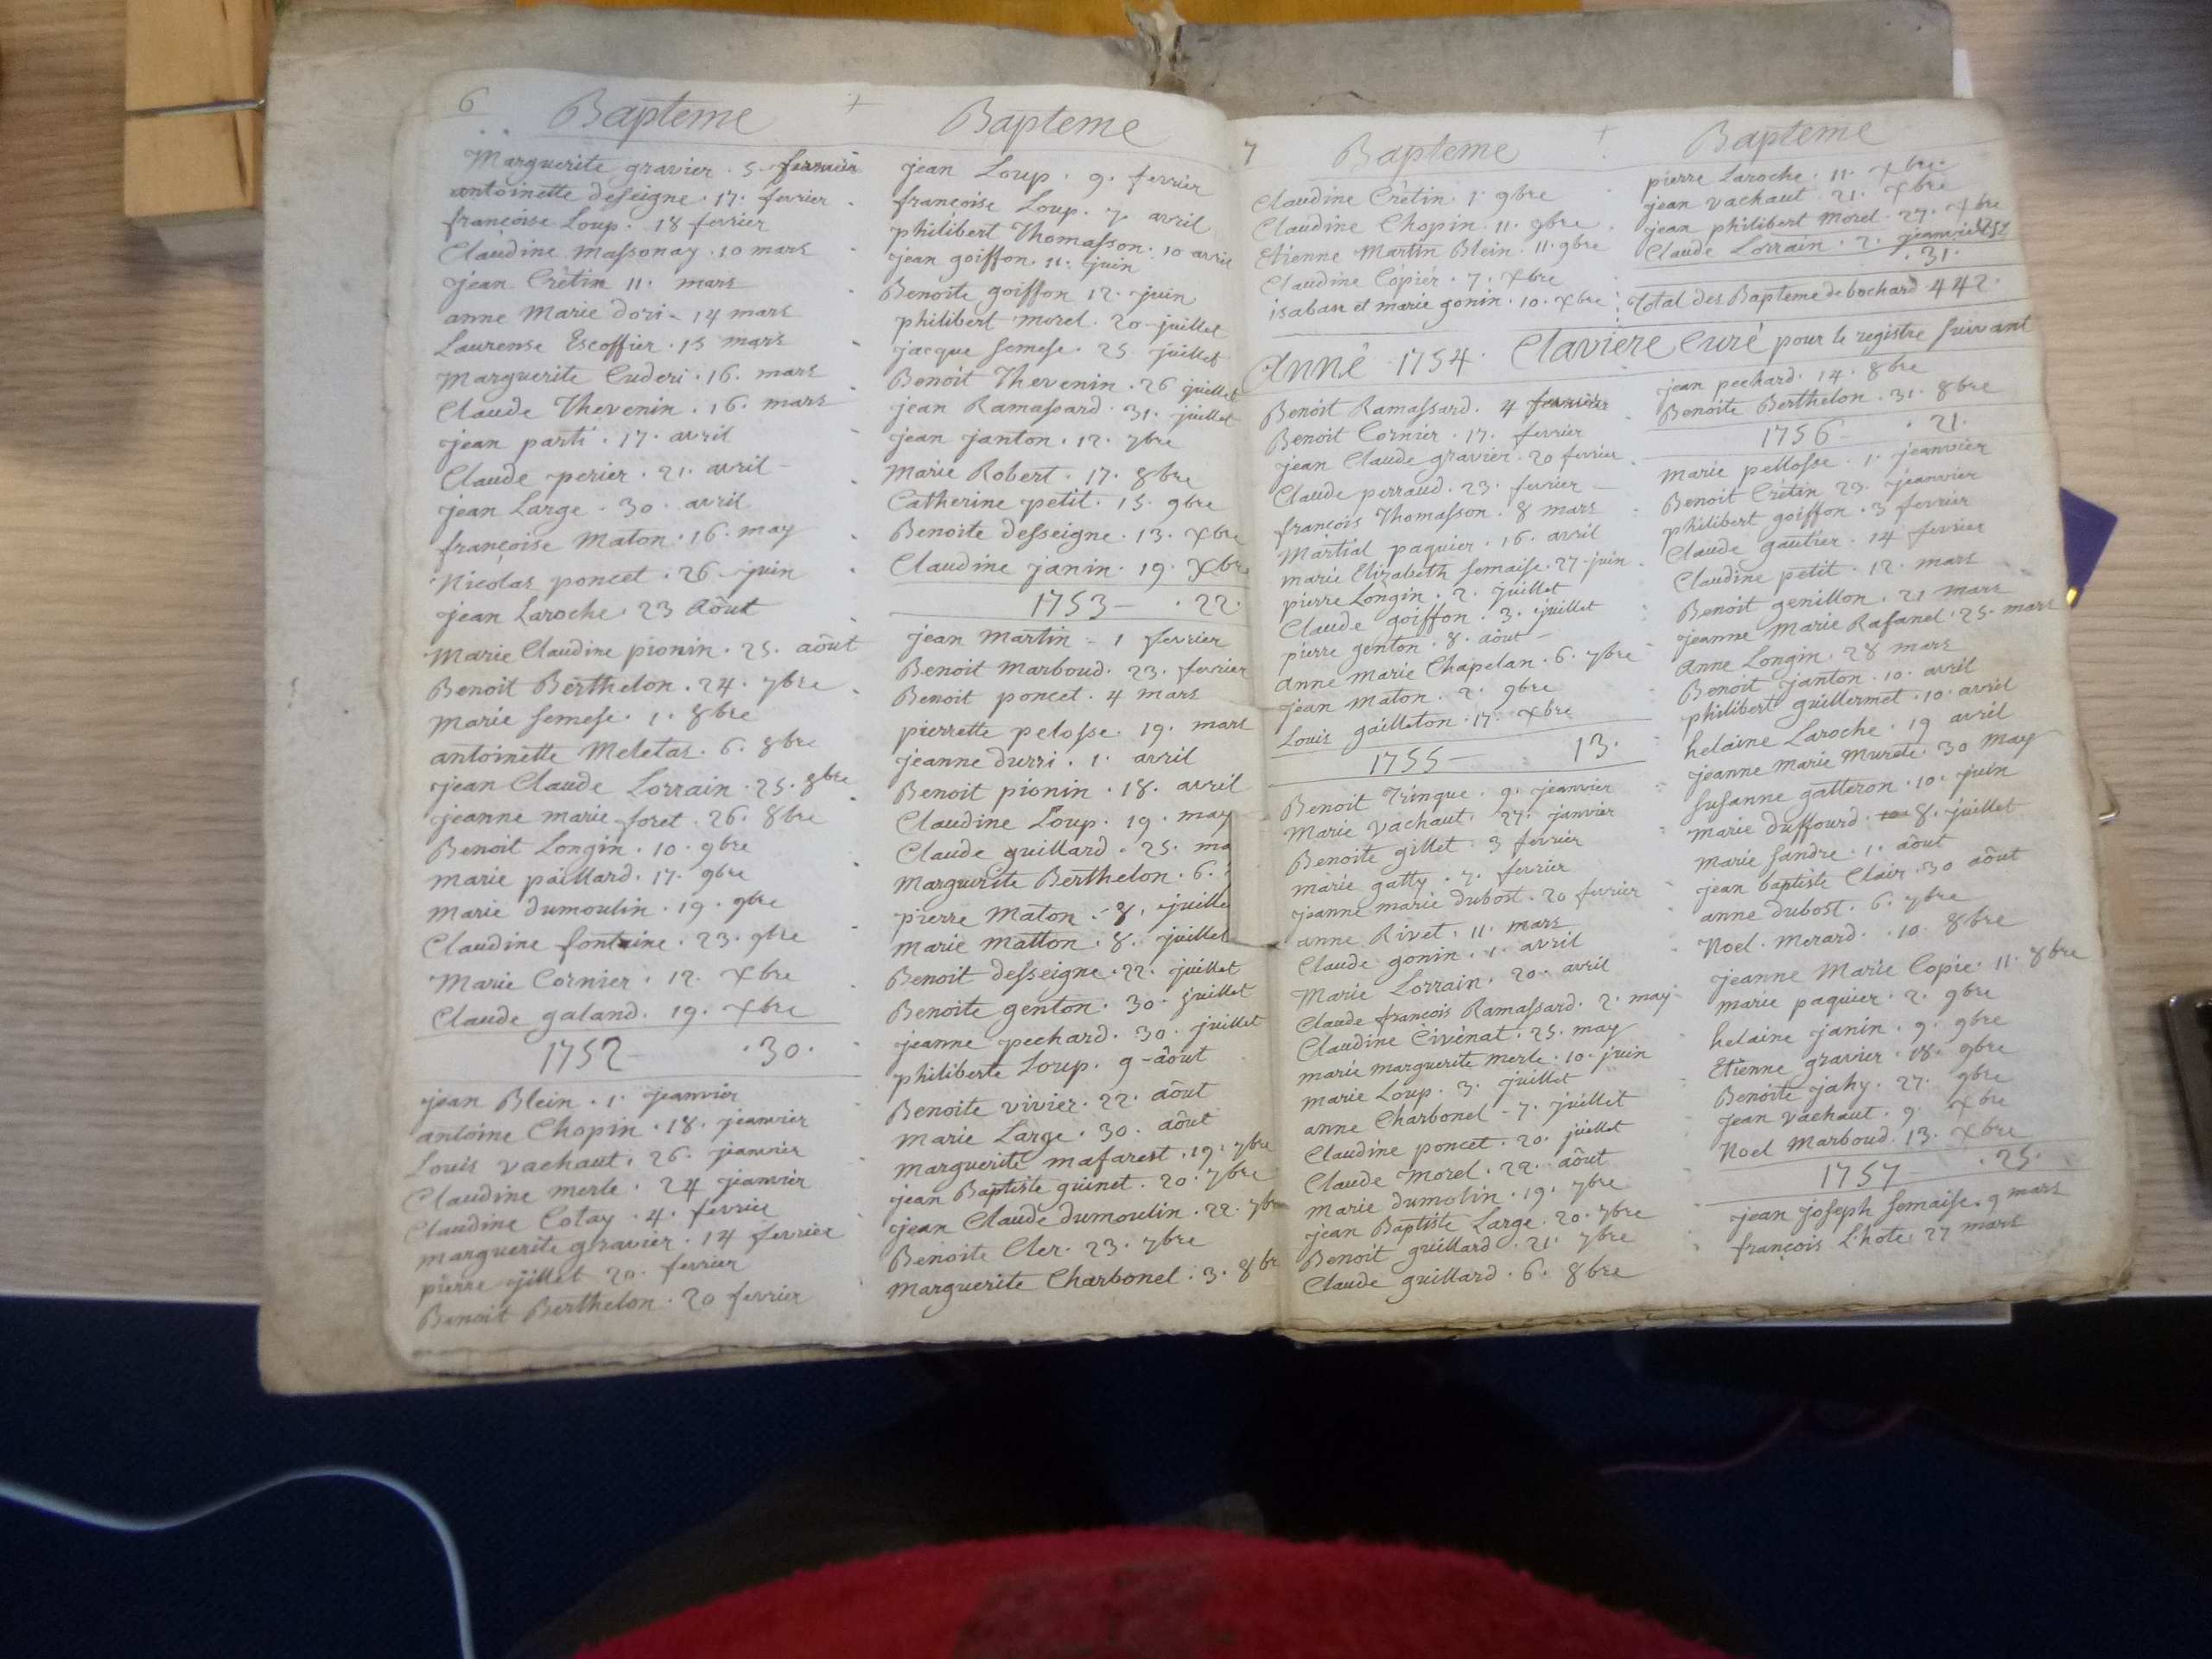 6
Bapteme
Marguerite gravier . 5 fevrier
antoinette deseigne . 17. fevrier
francoise Loup . 18 fevrier
Claudine massonay . 10 mars
jean Crétin 11. mars
anne Marie dori . 14 mars
Laurense Escoffier . 15 mars
Marguerite Cuderi . 16. mars
Claude Thevenin . 16. mars
jean parti . 17. avril
Claude perier . 21. avril
jean Large . 30. avril
françoise Maton . 16. may
Nicolas poncet . 26. juin
jean Laroche . 23 Aôut
Marie Claudine pionin . 25. aôut
Benoit Berthelon . 24. 7bre
Marie semese . 1. 8bre
antoinette Meletas . 6. 8bre
jean Claude Lorrain . 25. 8bre
jeanne marie foret . 26. 8bre
Benoit Longin . 10. 9bre
marie paillard . 17. 9bre
Marie dumoulin . 19. 9bre
Claudine fontaine . 23. 9bre
Marie Cornier . 12. Xbre
Claude galand . 19. Xbre
1752 . 30.
jean Blein . 1. jeanvier
antoine Chopin . 18. jeanvier
Louis vachaut . 26. jeanvier
Claudine merle . 24 jeanvier
Claudine Cotay . 4. fevrier
marguerite gravier . 14 fevrier
pierre jillet 20. fevrier
Benoit Berthelon . 20 fevrier
Bapteme
jean Loup . 9. fevrier
francoise Loup . 7. avril
philibert Thomasson . 10 avril
jean goiffon . 11. juin
Benoite goiffon 12. juin
philibert morel . 20 juillet
jacque semese . 25. juillet
Benoit Thevenin . 26 juillet
jean Ramassard . 31. juillet
jean janton . 12. 7bre
Marie Robert . 17. 8bre
Catherine petit . 15. 9bre
Benoite desseigne . 13. Xbre
Claudine janin . 19. Xbre
1753 . 22.
jean martin - 1 fevrier
Benoit Marboud . 23. fevrier
Benoit poncet . 4 mars
pierrette pelosse . 19. mars
jeanne durri . 1. avril
Benoit pionin . 18. avril
Claudine Loup . 19. may
Claude guillard . 25. ma
Marguerite Berthelon . 6.
pierre Maton . 8. juille
Marie matton . 8. juillet
Benoit desseigne . 22. juillet
Benoite genton . 30. juillet
jeanne pechard . 30. juillet
philiberte Loup . 9 - aôut
Benoite vivier . 22. aôut
Marie Large . 30. aôut
marguerite mafarest . 19. 7bre
jean Baptiste guinet . 20. 7bre
jean Claude dumoulin . 22. 7bre
Benoite Cler . 23. 7bre
Marguerite Charbonel . 3. 8br
7
Bapteme
Claudine Crétin . 1. 9bre
Claudine Chopin . 11. 9bre
Etienne Martin Blein . 11. 9bre
Claudine Copier . 7. Xbre
isabau et marie gonin . 10. Xbre
Bapteme
pierre Laroche . 11. Xbre
jean vachaut . 21. Xbre
jean philibert Morel . 27. Xbre
Claude Lorrain . 2. jeanvier
. 31.
Total des Bapteme de bochard . 442.
Anné 1754. Claviere Curé pour le registre suivant
Benoit Ramassard . 4 fevrier
Benoit Cornier . 17. fevrier
jean Claude gravier . 20 fevrier
Claude perraud . 23. fevrier
françois Thomasson . 8 mars
Martial paquier . 16. avril
marie Elizabeth semaise . 27. juin
pierre Longin . 2. juillet
Claude goiffon . 3. juillet
pierre genton . 8. aôut
Anne marie Chapelan . 6. 7bre
jean Maton . 2. 9bre
Louis gailleton . 17. Xbre
1755 13.
Benoit Trinque . 9. jeanvier
Marie vachaut . 27. janvier
Benoite gillet . 3 fevrier
marie gatty . 7. fevrier
jeanne marie dubost . 20 fevrier
anne Rivet . 11. mars
Claude gonin . 1. avril
Marie Lorrain . 20. avril
Claude françois Ramassard . 2. may
Claudine Civénat . 25. may
marie marguerite merle . 10. juin
marie Loup . 3. juillet
anne Charbonel - 7. juillet
Claudine poncet . 20. juillet
Claude Morel . 22. aôut
Marie dumolin . 19. 7bre
jean Baptiste Large . 20. 7bre
Benoit guillard . 21. 7bre
Claude guillard . 6. 8bre
jean pechard . 14. 8bre
Benoite Berthelon . 31. 8bre
1756 . 21.
marie pellosse . 1. jeanvier
Benoit Crétin 23. jeanvier
philibert goiffon . 3 fevrier
Claude gautier . 14 fevrier
Claudine petit . 12. mars
Benoit genillon . 21 mars
jeanne Marie Rafanel . 25. mars
Anne Longin . 28 mars
Benoit janton . 10. avril
philibert guillermet . 10. avril
helaine Laroche . 19 avril
jeanne marie Murete . 30 May
susanne gatteron . 10. juin
Marie duffourd . 8. juillet
marie sandre . 1. aôut
jean baptiste Clair . 30 aôut
anne dubost . 6. 7bre
Noel . merard . 10. 8bre
jeanne Marie Copie . 11. 8bre
marie paquier . 2. 9bre
helaine janin . 9. 9bre
Etienne gravier . 18. 9bre
Benoite jahy . 27. 9bre
jean vachaut . 9. Xbre
Noel Marboud . 13. Xbre
1757 . 25.
jean joseph semaise . 9 mars
françois L'hote . 27 mars